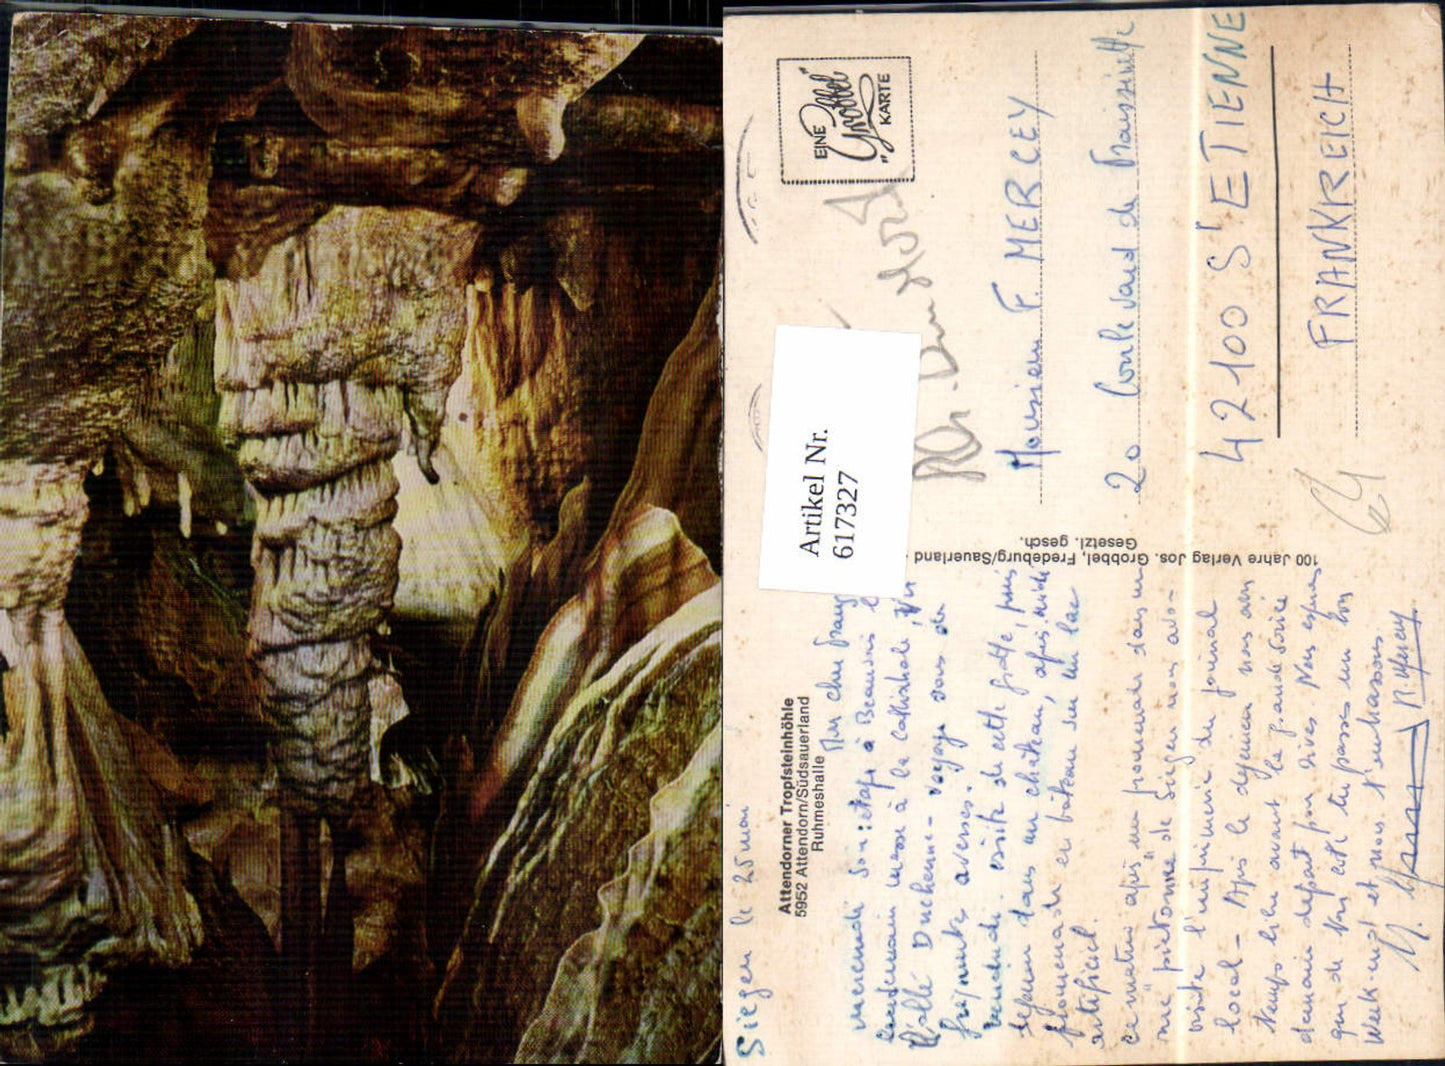 Siegen le 25 mai
Attendorner Tropfsteinhöhle
5952 Attendorn/Südsauerland
Ruhmeshalle
Mon cher
mercredi soir : étape à Beaune
lendemain messe à la Cathédrale
l'allé Duchenne - voyage sous de
fréquentes averses.
vendredi. visite de cette grotte, puis
repas dans un château, après midi
promenade en bâteau sur un lac
artificiel.
ce matin après une promenade dans une
rue "piétonne" de Siegen nous avons
visité l'imprimerie du journal
local - Après le déjeuner nous avons
temps libre avant la grande soirée
demain départ pour Nous espérons
que de ton côté tu passes un bon
Week-end et nous t'embrassons
M. Mercey
100 Jahre Verlag Jos. Grobbel, Fredeburg/Sauerland
Gesetzl. gesch.
EINE
"Grobbel"
KARTE
Artikel Nr.
617327
Monsieur F. MERCEY
20 Boulevard de
42100 St ETIENNE
FRANKREICH